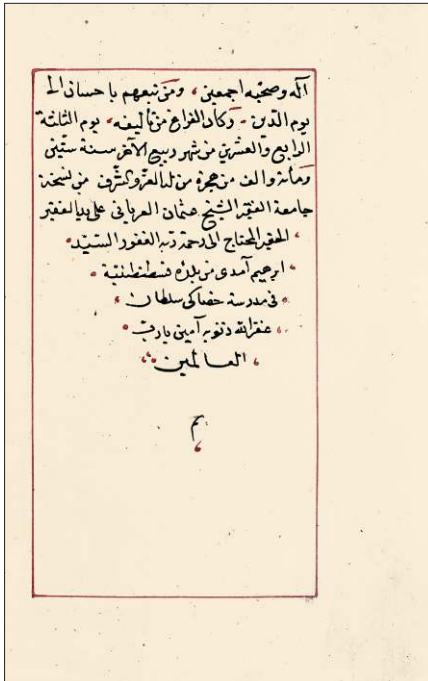 آله وصحبه اجمعين، ومن تبعهم باحسان الى
يوم الدين. وكان الفراغ من تأليفه، يوم الثالثة
الرابع والعشرين من شهر ربيع الآخر سنة ستين
ومائة والف من هجرة من له العز والشرف من نسخة
جامعة الفقير الشيخ عثمان العرياني على يد الفقير
الحقير المحتاج الى رحمة ربه الغفور السيد
ابرهيم آمدى من بلدة قسطنطنية
فى مدرسة خصاكى سلطان
غفر الله ذنوبه آمين يا رب
العالمين
م